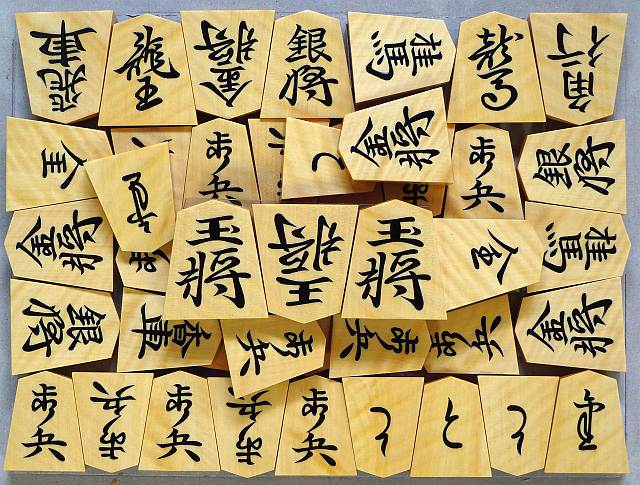 飛車
龍王
金将
銀将
桂馬
龍馬
角行
全
歩兵
と
金将
歩兵
銀将
金将
王将
王将
王将
全
桂馬
銀将
香車
歩兵
歩兵
歩兵
金将
歩兵
歩兵
歩兵
歩兵
歩兵
と
と
と